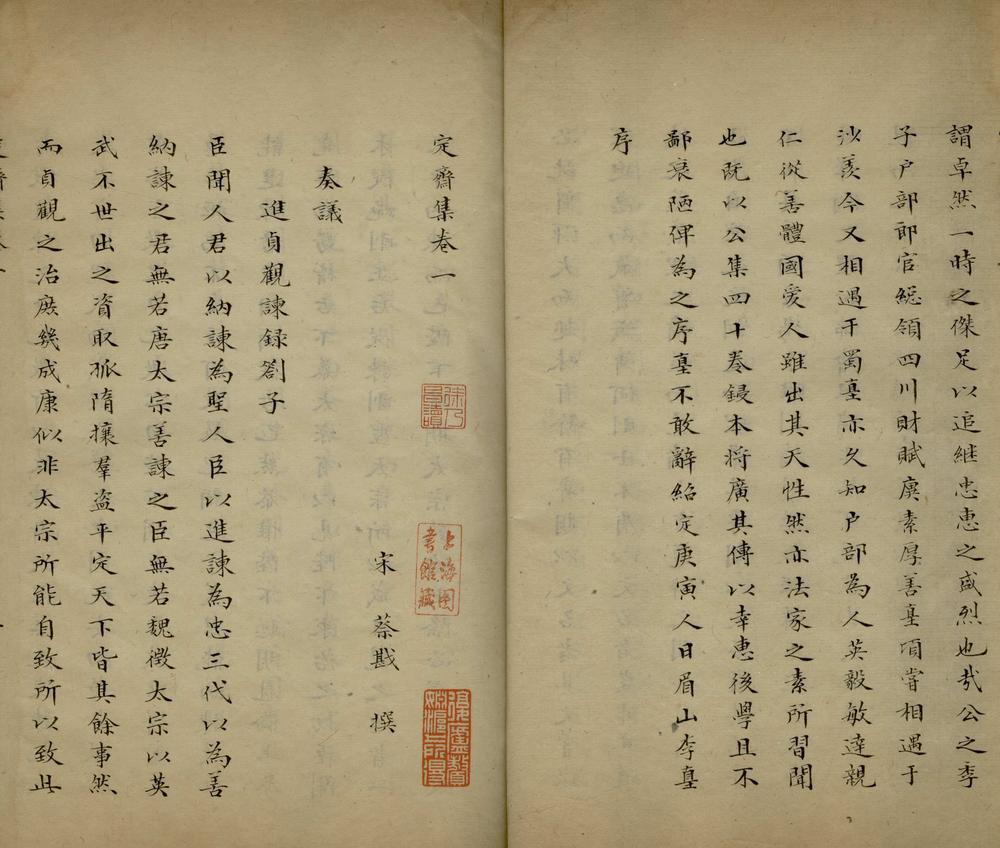 謂卓然一時之傑足以追継忠恵之盛烈也㢤公之季
子户部郎官總領四川財賦廙素厚善𡌴項嘗相遇于
沙羨今又相遇于蜀𡌴亦久知户部為人英毅敏達親
仁從善體國愛人雖出其天性然亦法家之素所習聞
也既以公集四十卷鋟本将廣其傳以幸恵後學且不
鄙衰陋俾為之序𡌴不敢辭紹定庚寅人日眉山李𡌴
序
定齋集卷一
宋 蔡戡 撰
奏議
進貞觀諫録劄子
臣聞人君以納諫為聖人臣以進諫為忠三代以為善
納諫之君無若唐太宗善諫之臣無若魏徴太宗以英
武不世出之資取孤隋攘羣盗平定天下皆其餘事然
而貞觀之治庶幾成康似非太宗所能自致所以致此
徐乃昌讀
上海圖書館藏